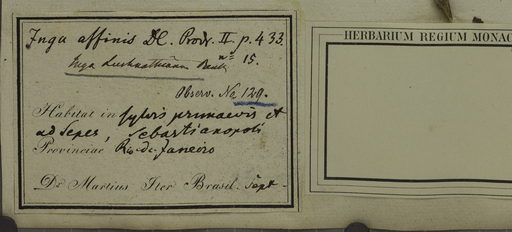 Inga affinis DC. Prodr. II. p. 433.
nº 15.
Inga Benth.
Observ. No 129.
Habitat in sylvis primaevis et
ad Sepes, Sebastianopoli
Provinciae Rio de Janeiro
Dr Martius Iter Brasil. Sept -
HERBARIUM REGIUM MONAC